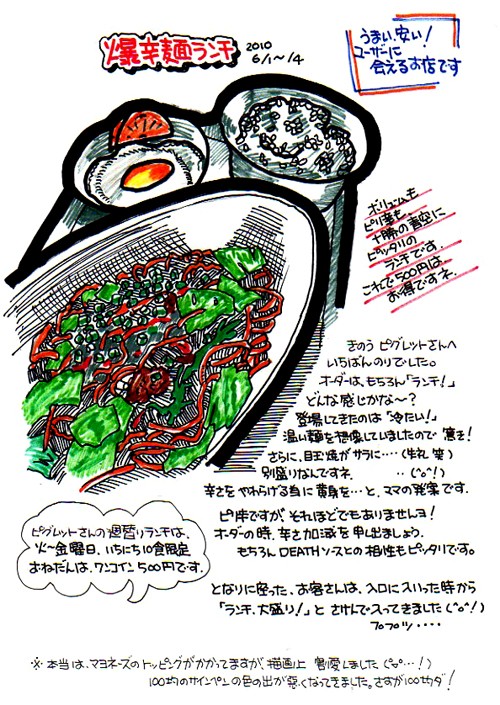 爆辛麺ランチ
2010
6/1〜/4
うまい、安い!
ユーザーに
会えるお店です
ボリュームも
ピリ辛も
十勝の青空に
ピッタリの
ランチです。
これで500円は、
お得ですネ。
きのう ピグレットさんへ
いちばんのりでした。
オーダーは、もちろん「ランチ!」
どんな感じかな〜?
登場してきたのは「冷たい!」
温い麺を想像していましたので 驚き!
さらに、目玉焼がサラに‥‥(失礼 笑)
別盛りなんですネ ‥ (^o^!)
辛さを やわらげる為に 黄身を‥と、ママの発案です。
ピリ辛ですが、それほどでもありませんヨ!
オーダーの時、辛さ加減を申し出ましょう。
もちろん DEATHソースとの相性もピッタリです。
ピグレットさんの週替りランチは、
火〜金曜日、いちにち10食限定
おねだんは、ワンコイン 500円です。
となりに座った、お客さんは、入口に入いった時から
「ランチ、大盛り!」と さけんで入ってきました(^o^!)
プププッ‥‥
※ 本当は、マヨネーズのトッピングがかかってますが、描画上 割愛しました(^o^‥!)
100均のサインペンの色の出が悪くなってきました。さすが100均ダ!